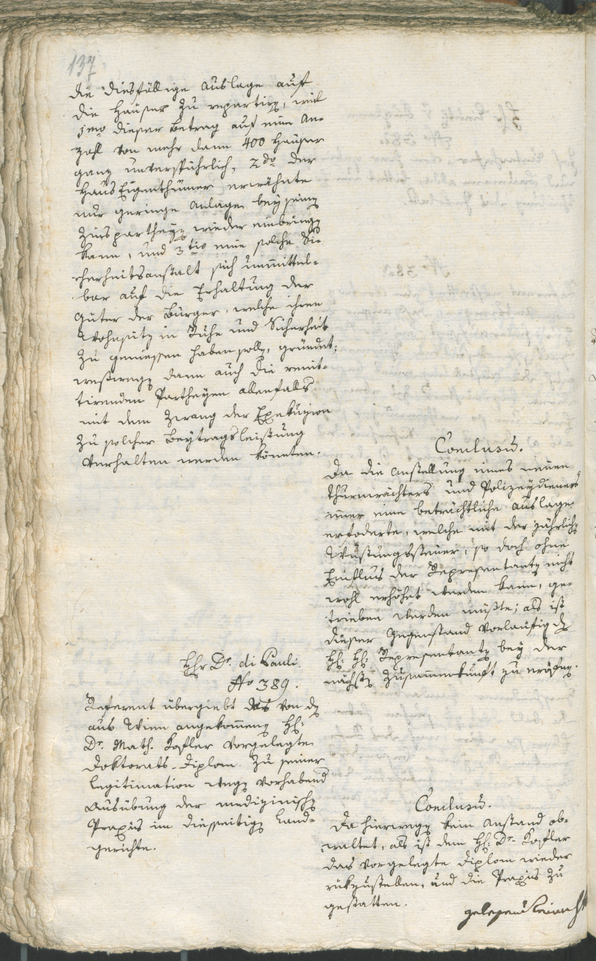 137
die diesfällige Auslage auf
die Häuser zu repartirn, weil
1mo dieser Betrag auf eine An-
zahl von mehr dann 400 Häuser
ganz unterführlich, 2do der
HausEigenthümer erwähnte
nur geringe Anlage bey seinen
Zinspartheyen wieder einbringen
kann, und 3tio eine solche Si-
cherheitsanstalt sich unmittel-
bar auf die Erhaltung der
Güter der Bürger, welche ihren
Wohnsitz in Ruhe und Sicherheit
zu geniessen haben solln, gründet;
weßwegen dann auch die renit-
tirenden Partheyen allenfalls
mit dem Zwang der Exekuzion
zu solcher Beytragsleistung
verhalten werden könnten.
Conclusum.
Da die Anstellung eines neuen
Thurmwächters und Polizeydieners
immer eine beträchtliche Auslage
erfoderte, welche mit der jährlichen
Wustungssteuer, so doch ohne
Einfluß der Representantz nicht
wohl erhöhet werden kann, ge-
trieben werden müßte; als ist
dieser Gegenstand vorläufig den
HH. HH. Representanten bey der
nächsten Zusammenkunft zu
Hr. Dr. di Pauli
No 389.
Referent übergiebt das von dem
aus Wien angekommenen H.
Dr. Math. Kofler vorgelegte
Doktorats-Diplom zu seiner
Legitimation wegen vorhabend
Ausübung der medizinischen
Praxis im diesseitigen Land-
gerichte.
Conclusum.
Da hierwegen kein Anstand ob-
waltet, als ist dem H. Dr. Kofler
das vorgelegte Diplom wieder
rükzustellen, und die Praxis zu
gestatten.
gelesen